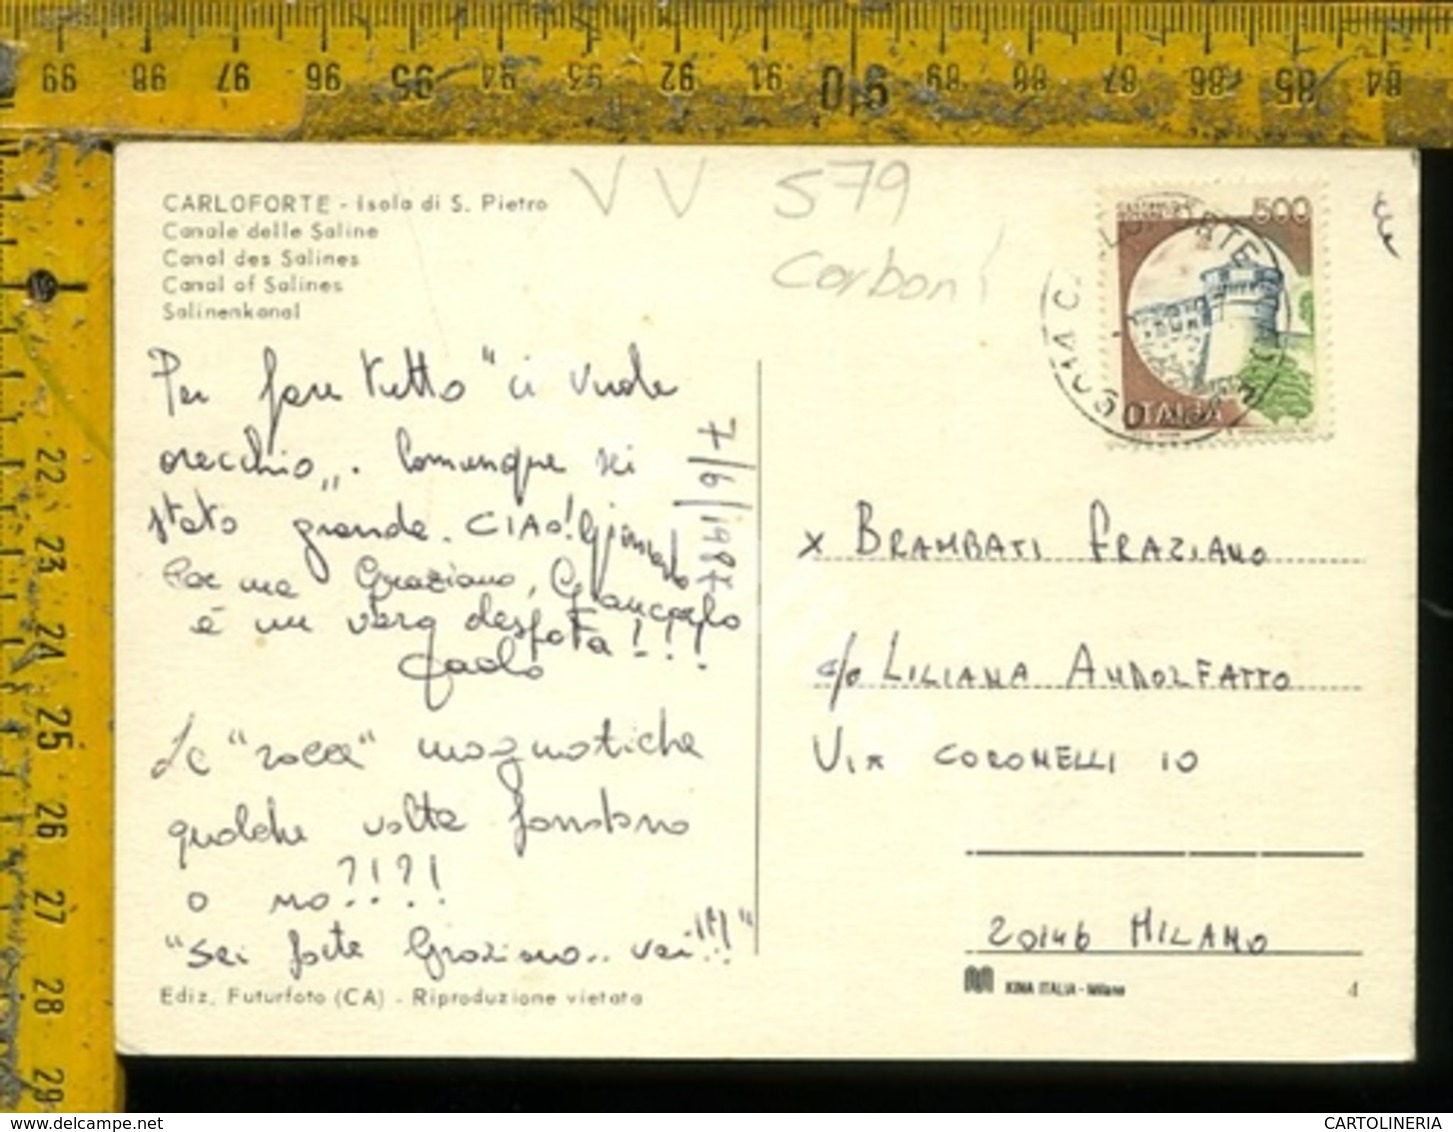 99 98 97 96 95 94 93 92 91 90 89 88 87 86 85 84
22
23
24
25
26
27
28
29
CARLOFORTE - Isola di S. Pietro
Canale delle Saline
Canal des Salines
Canal of Salines
Salinenkanal
VV 579
Carboni
500
ITALIA
Per fare tutto "ci vuole
orecchio". Comunque sei
stato grande. CIAO! Giancarlo
7/6/1987
Per me Graziano, Giancarlo
è un vero despota!!!
Paolo
Le "rocce" magnetiche
qualche volta
o no?!?!
"Sei forte Graziano.. vai!!!"
Ediz. Futurfoto (CA) - Riproduzione vietata
x BRAMBATI GRAZIANO
c/o LILIANA ANDOLFATTO
VIA CORONELLI 10
20146 MILANO
KINA ITALIA - Milano
4
CARTOLINERIA